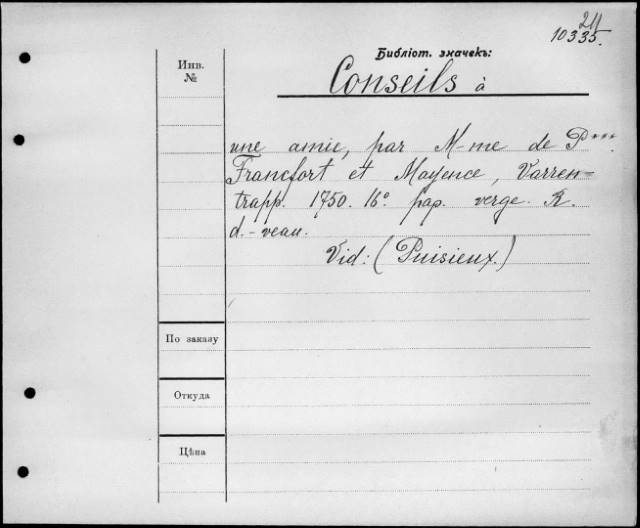 211
10335.
Библіот. значекъ:
Инв.
№
Conseils à
une amie, par M-me de P***.
Francfort et Mayence, Varren=
trapp. 1750. 16°. pap. vergé. R.
d.-veau.
Vid: (Puisieux.)
По заказу
Откуда
Цѣна